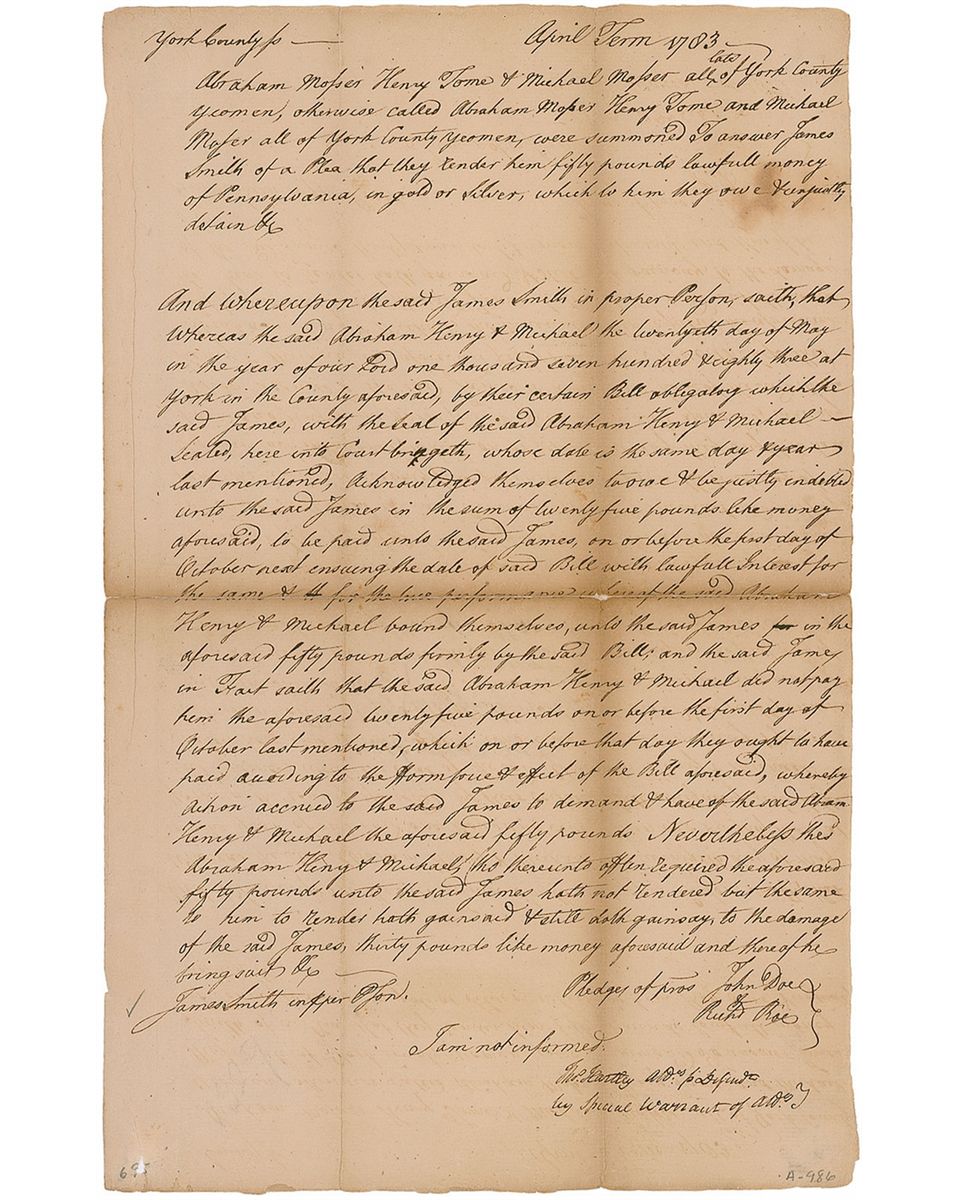 York County ss April Term 1783
Abraham Mosser Henry Tome & Michael Mosser all late of York County
yeomen, otherwise called Abraham Moser Henry Tome and Michael
Moser all of York County yeomen, were summoned To answer James
Smith of a Plea that they render him fifty pounds lawfull money
of Pennsylvania, in gold or Silver, which to him they owe & unjustly
detain &c
And Whereupon the said James Smith in proper Person, saith, that
Whereas the said Abraham Henry & Michael the twentyeth day of May
in the year of our Lord one thousand seven hundred & eighty three at
York in the County aforesaid, by their certain Bill obligatory which the
said James, with the seal of the said Abraham Henry & Michael
Sealed, here into Court bringeth, whose date is the same day & year
last mentioned, Acknowledged themselves to owe & be justly indebted
unto the said James in the sum of twenty five pounds like money
aforesaid, to be paid unto the said James, on or before the first day of
October next ensuing the date of said Bill with lawfull Interest for
the same & for the true performance whereof the said Abraham
Henry & Michael bound themselves, unto the said James in the
aforesaid fifty pounds firmly by the said Bill; and the said James
in Fact saith that the said Abraham Henry & Michael did not pay
him the aforesaid twenty five pounds on or before the first day of
October last mentioned, which on or before that day they ought to have
paid according to the form force & effect of the Bill aforesaid, whereby
Action accrued to the said James to demand & have of the said Abram
Henry & Michael the aforesaid fifty pounds Nevertheless the sd
Abraham Henry & Michael, tho thereunto often required the aforesaid
fifty pounds unto the said James hath not rendered but the same
to him to render hath gainsaid & still doth gainsay, to the damage
of the said James, thirty pounds like money aforesaid and thereof he
bring suit &c
James Smith in pper Pson.
Pledges of pros John Doe
& Richd Roe
I am not informed.
Thos. Hartley Atty. p Defend.
by Special Warrant of Atty.
69
A-986